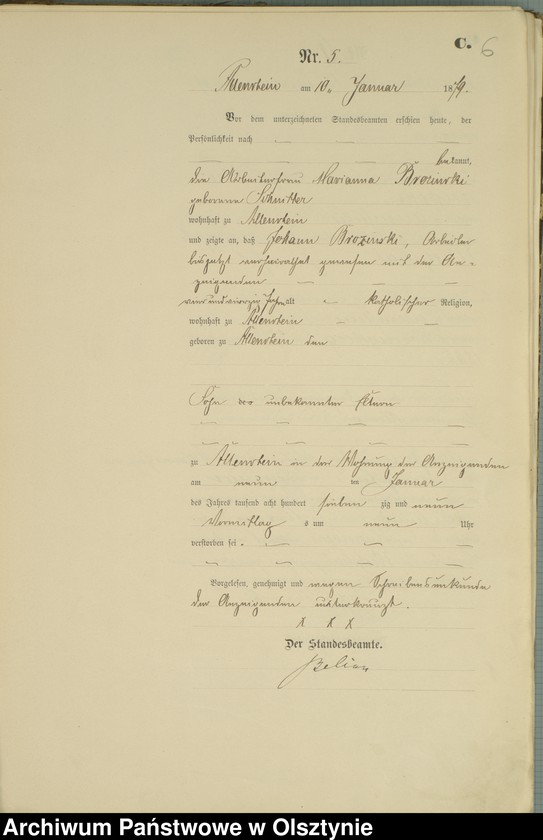 C. 6
Nr. 5.
Allenstein am 10. Januar 1879.
Vor dem unterzeichneten Standesbeamten erschien heute, der
Persönlichkeit nach
bekannt,
die Arbeiterfrau Marianna Brozinski
geborene Schnitter
wohnhaft zu Allenstein
und zeigte an, daß Johann Brozinski, Arbeiter
verheirathet gewesen mit der An-
zeigenden
vier und vierzig Jahre alt katholischer Religion,
wohnhaft zu Allenstein
geboren zu Allenstein den
Sohn unbekannter Eltern
zu Allenstein in der Wohnung der Anzeigenden
am neun ten Januar
des Jahres tausend acht hundert sieben zig und neun
Vormittag s um neun Uhr
verstorben sei.
Vorgelesen, genehmigt und wegen Schreibensunkunde
der Anzeigenden unterkreuzt.
X X X
Der Standesbeamte.
Belian
Archiwum Państwowe w Olsztynie